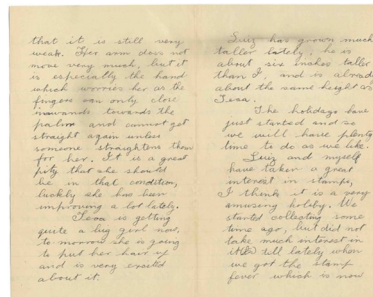 that it is still very
weak. Her arm does not
move very much, but it
is especially the hand
which worries her as the
fingers can only close
inwards towards the
palm and cannot get
straight again unless
someone straightens them
for her. It is a great
pity that she should
be in that condition,
luckily she has been
improving a lot lately.
Tesa is getting
quite a big girl now,
to morrow she is going
to put her hair up
and is very excited
about it.
Luiz has grown much
taller lately, he is
about six inches taller
than I, and is already
about the same height as
Tesa.
The holidays have
just started and so
we will have plenty
time to do as we like.
Luiz and myself
have taken a great
interest in stamps,
I think it is a very
amusing hobby. We
started collecting some
time ago, but did not
take much interest in
it till lately when
we got the stamp
fever which is now